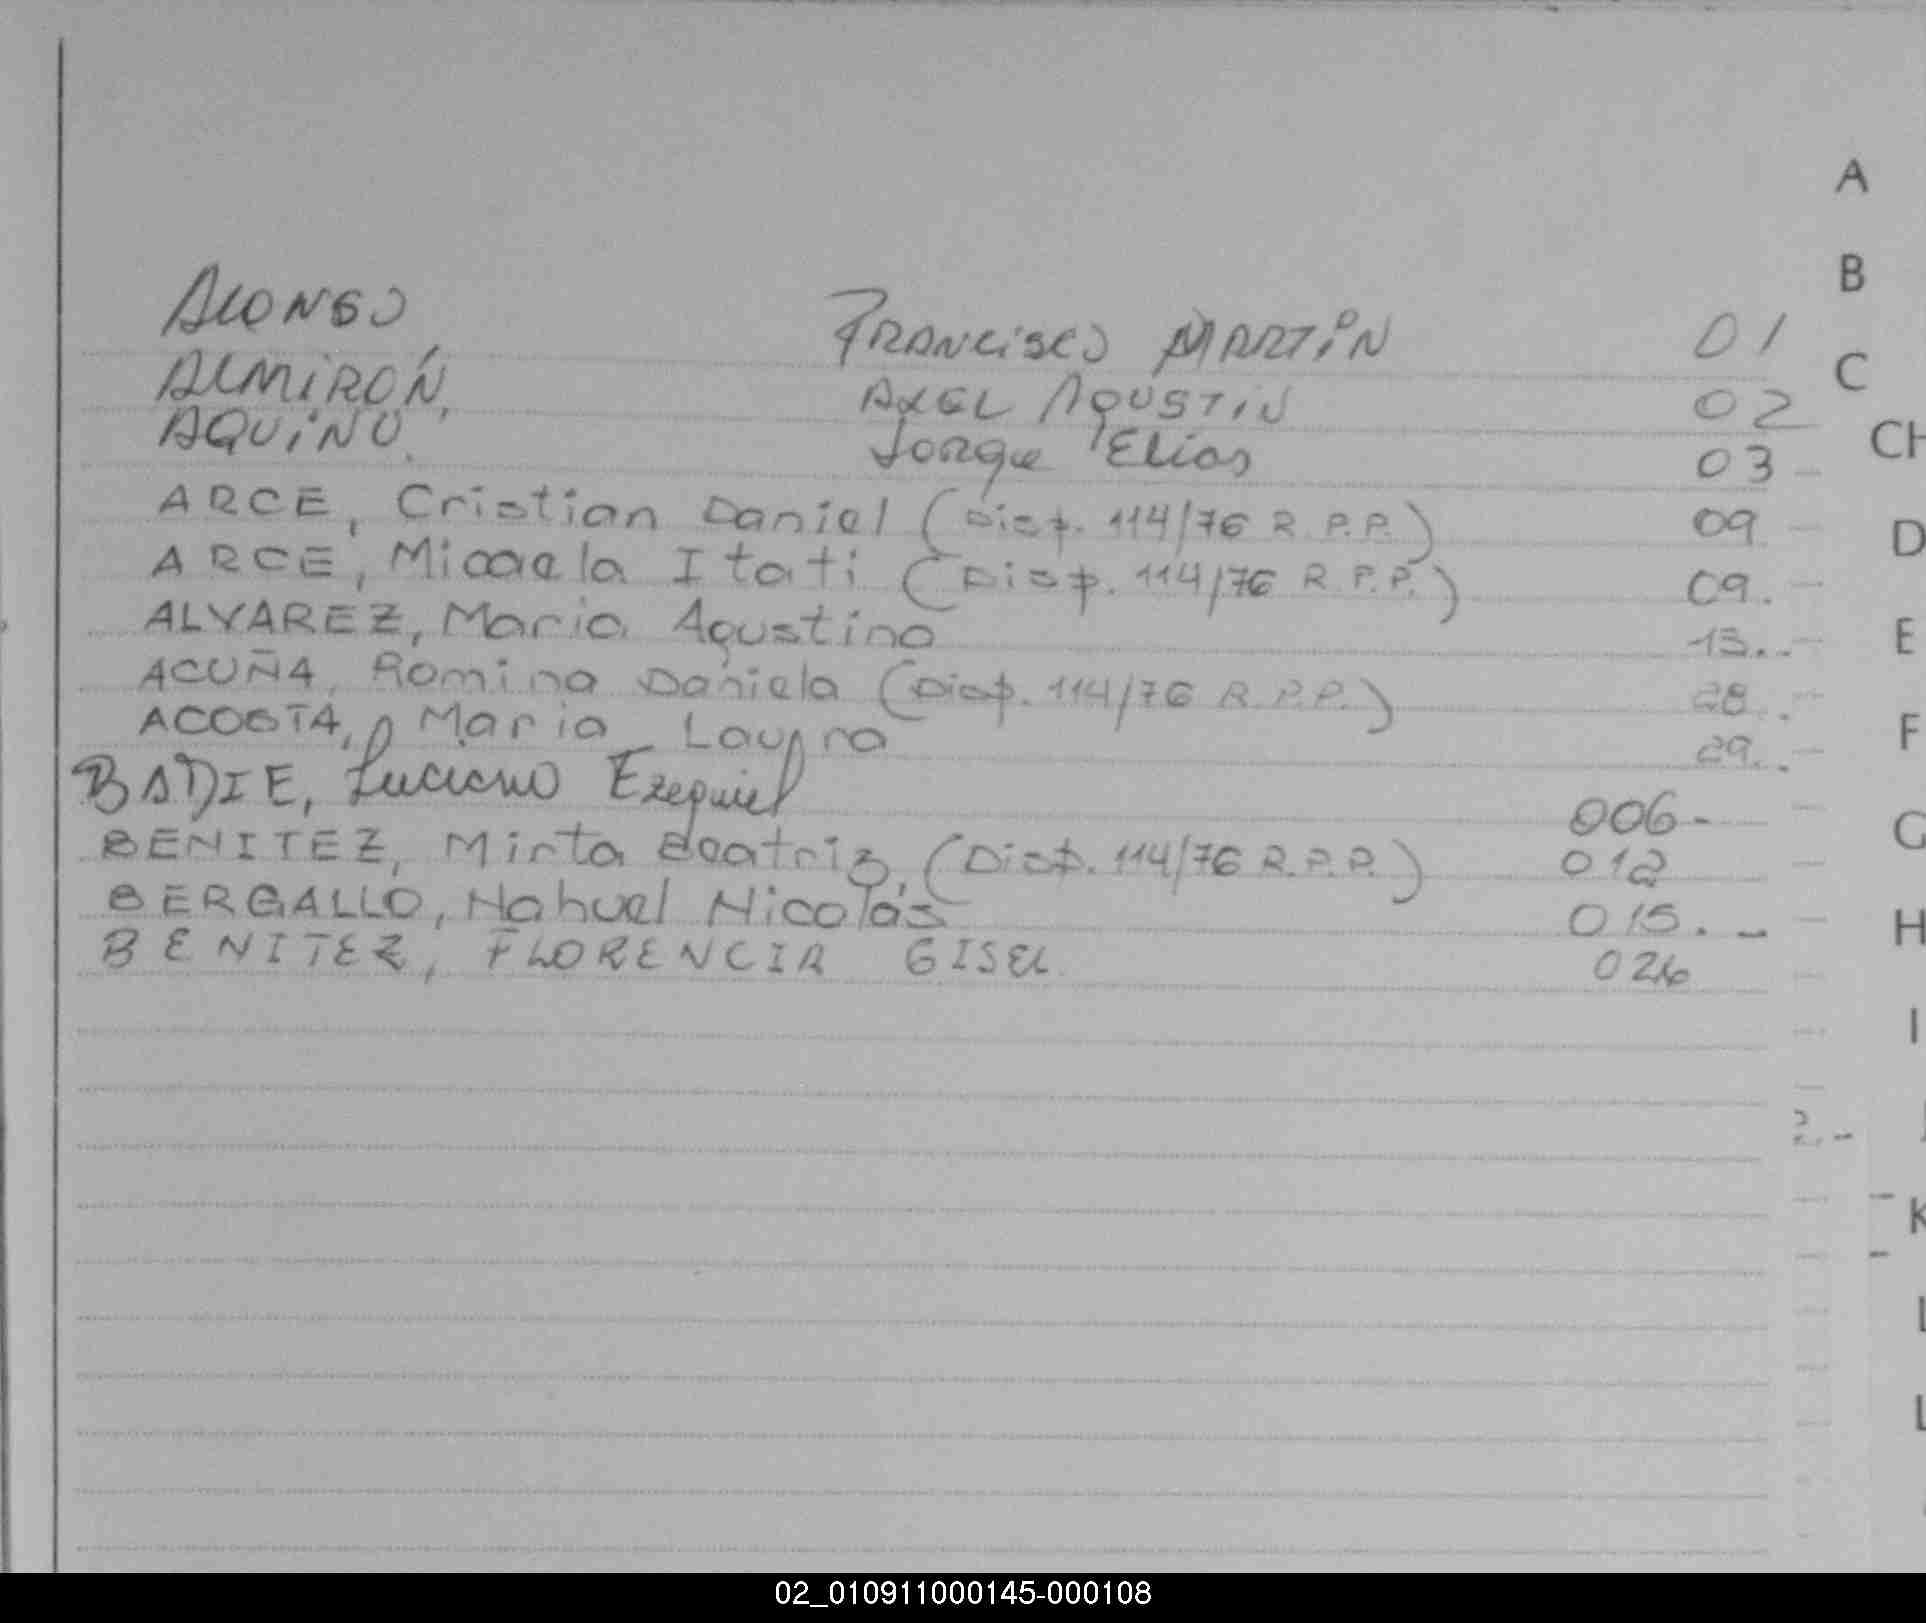 ALONSO, FRANCISCO MARTIN 01
ALMIRÓN, AXEL AGUSTIN 02
AQUINO, Jorge Elias 03
ARCE, Cristian Daniel (Disp. 114/76 R.P.P.) 09
ARCE, Micaela Itati (Disp. 114/76 R.P.P.) 09.
ALVAREZ, Maria Agustina 13..
ACUÑA, Romina Daniela (Disp. 114/76 R.P.P.) 28.
ACOSTA, Maria Laura 29..
BADIE, Luciano Ezequiel 006-
BENITEZ, Mirta Beatriz, (Disp. 114/76 R.P.P.) 012
BERGALLO, Nahuel Nicolás 015.-
BENITEZ, FLORENCIA GISEL 026
A
B
C
CH
D
E
F
G
H
I
K
L
L
02_010911000145-000108